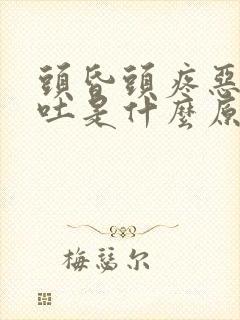 頭昏頭疼惡
吐是什麼原
梅瑟尔